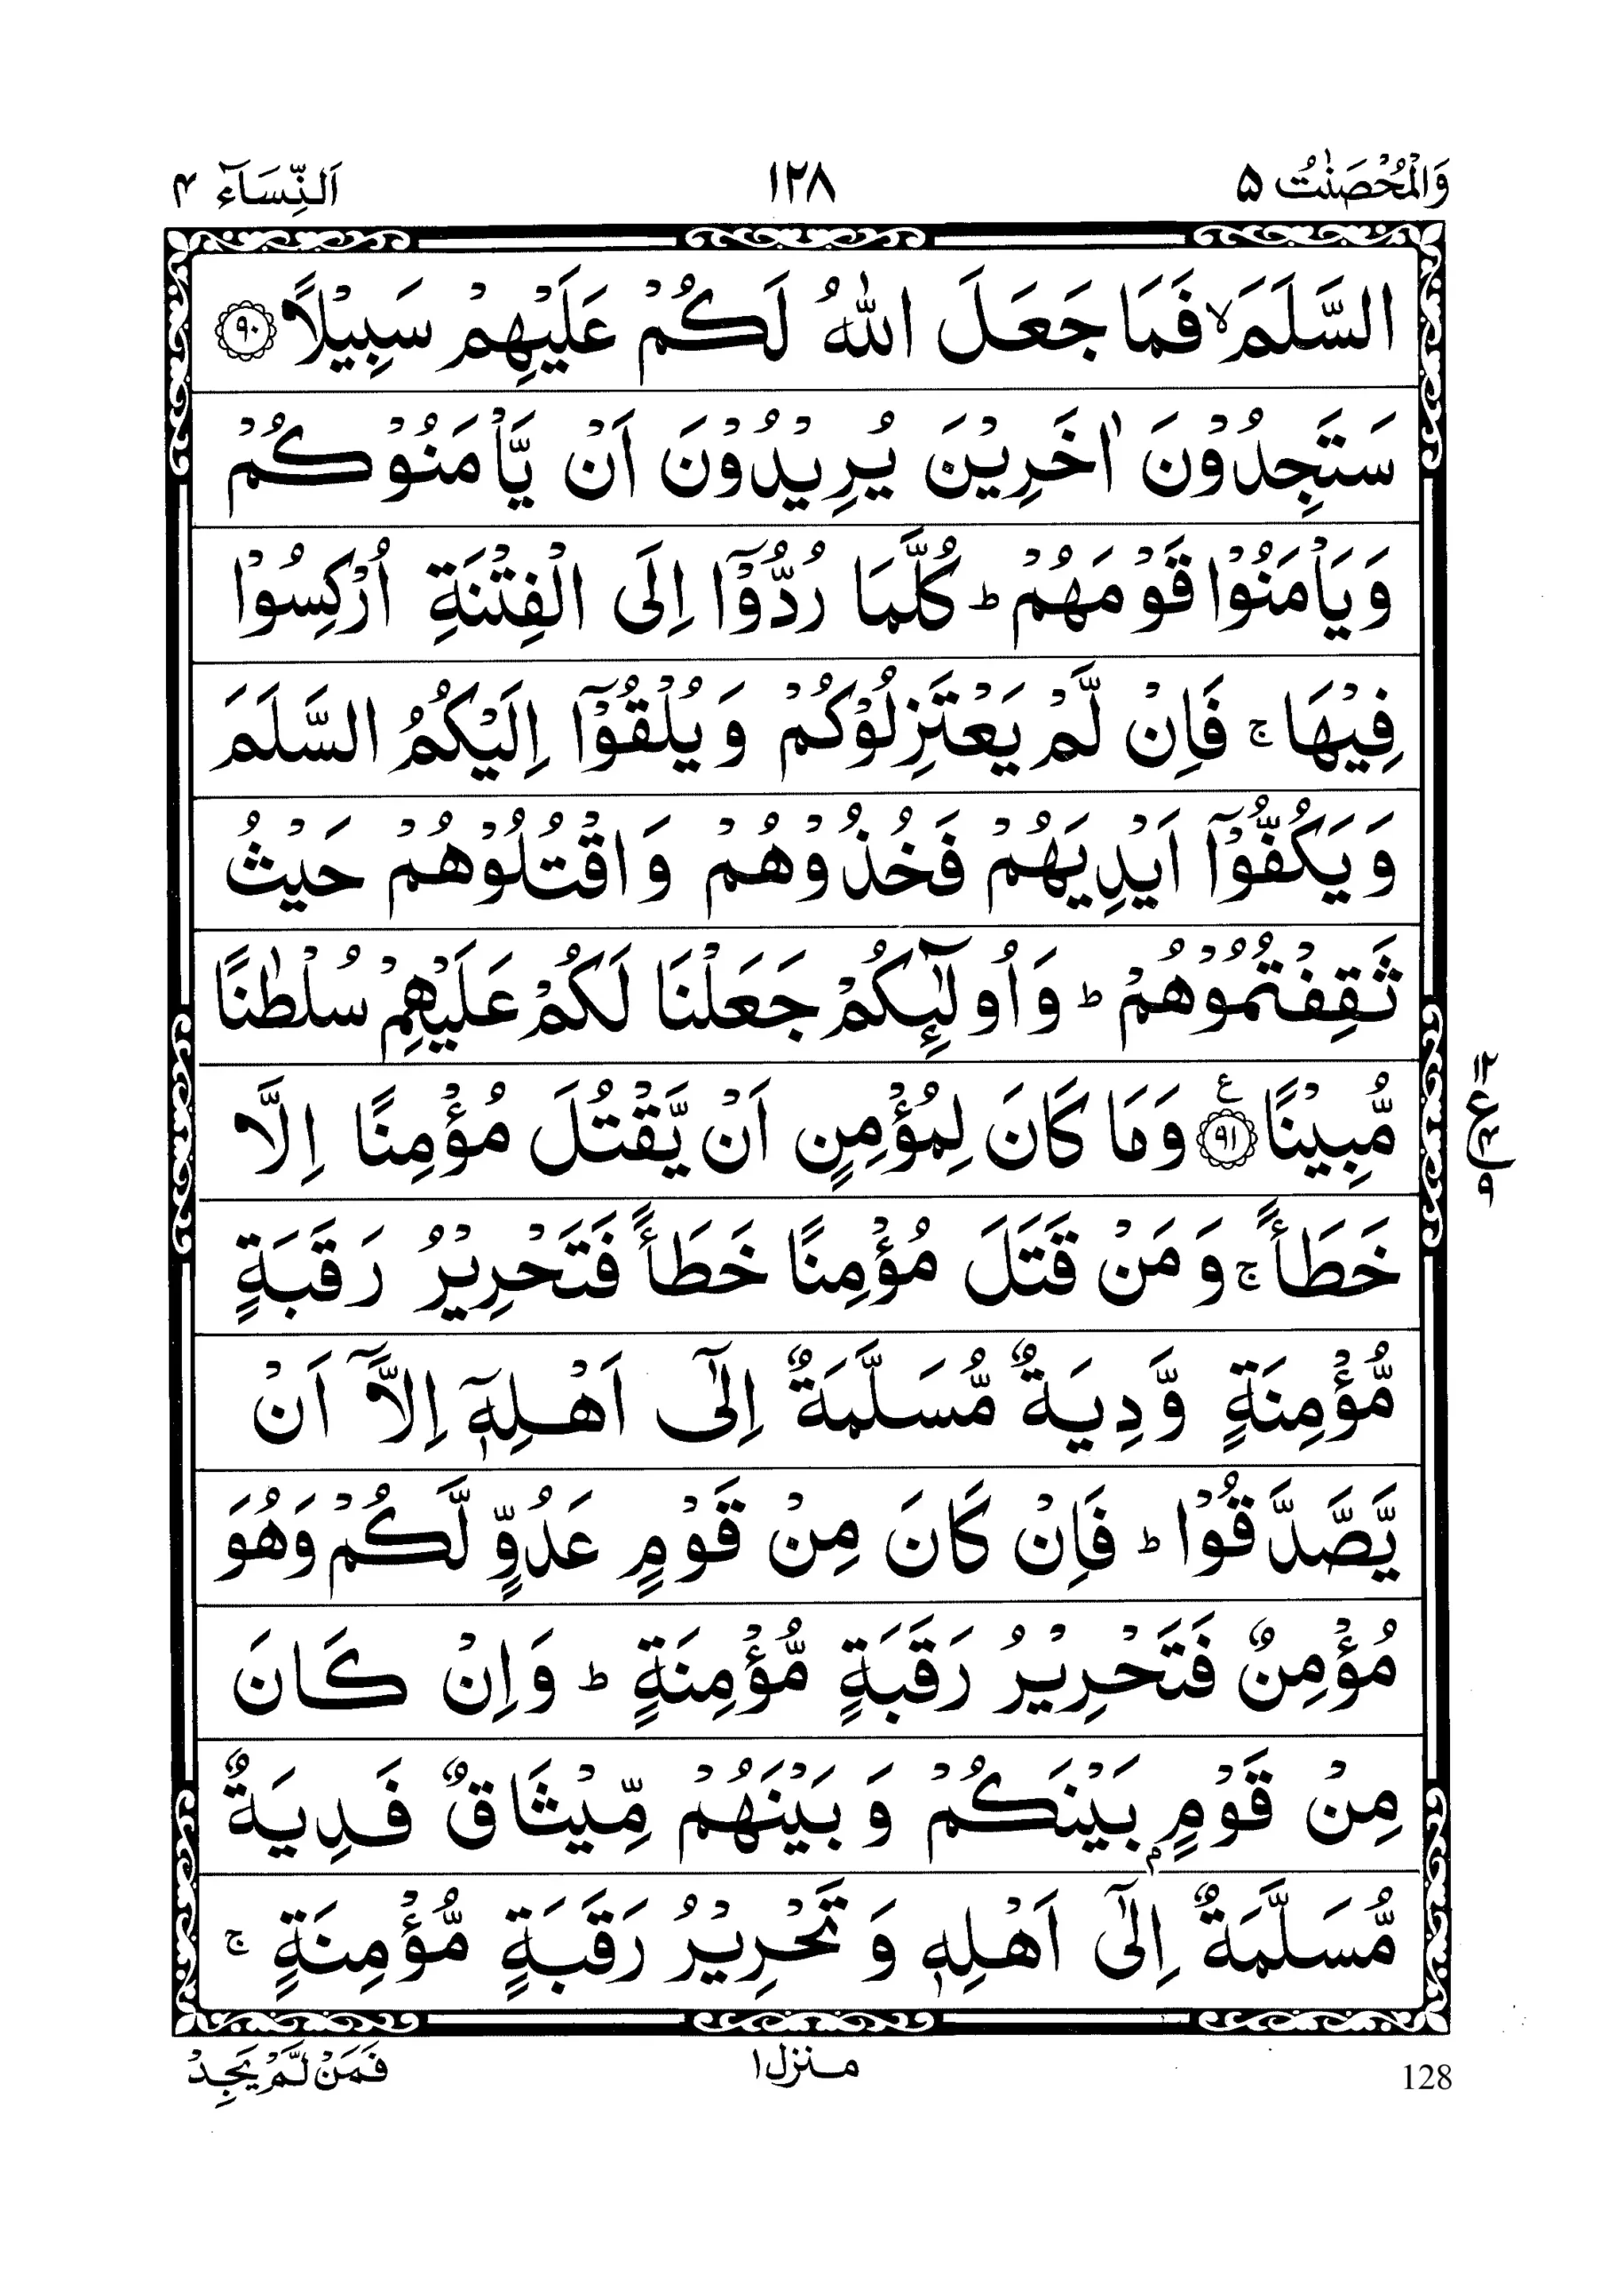 وَالْمُحْصَنٰتُ ۵ ۱۲۸ اَلنِّسَآء ۴
السَّلَمَ ۙ فَمَا جَعَلَ اللّٰهُ لَكُمْ عَلَيْهِمْ سَبِيْلًا ۹۰
سَتَجِدُوْنَ اٰخَرِيْنَ يُرِيْدُوْنَ اَنْ يَّاْمَنُوْكُمْ
وَيَاْمَنُوْا قَوْمَهُمْ ؕ كُلَّمَا رُدُّوْۤا اِلَى الْفِتْنَةِ اُرْكِسُوْا
فِيْهَا ۚ فَاِنْ لَّمْ يَعْتَزِلُوْكُمْ وَيُلْقُوْۤا اِلَيْكُمُ السَّلَمَ
وَيَكُفُّوْۤا اَيْدِيَهُمْ فَخُذُوْهُمْ وَاقْتُلُوْهُمْ حَيْثُ
ثَقِفْتُمُوْهُمْ ؕ وَاُولٰٓئِكُمْ جَعَلْنَا لَكُمْ عَلَيْهِمْ سُلْطٰنًا
مُّبِيْنًا ۹۱ ع وَمَا كَانَ لِمُؤْمِنٍ اَنْ يَّقْتُلَ مُؤْمِنًا اِلَّا
خَطَـًٔا ۚ وَمَنْ قَتَلَ مُؤْمِنًا خَطَـًٔا فَتَحْرِيْرُ رَقَبَةٍ
مُّؤْمِنَةٍ وَّدِيَةٌ مُّسَلَّمَةٌ اِلٰٓى اَهْلِهٖۤ اِلَّاۤ اَنْ
يَّصَّدَّقُوْا ؕ فَاِنْ كَانَ مِنْ قَوْمٍ عَدُوٍّ لَّكُمْ وَهُوَ
مُؤْمِنٌ فَتَحْرِيْرُ رَقَبَةٍ مُّؤْمِنَةٍ ؕ وَاِنْ كَانَ
مِنْ قَوْمٍۭ بَيْنَكُمْ وَبَيْنَهُمْ مِّيْثَاقٌ فَدِيَةٌ
مُّسَلَّمَةٌ اِلٰٓى اَهْلِهٖ وَتَحْرِيْرُ رَقَبَةٍ مُّؤْمِنَةٍ ۚ
۱۲ ع ۹
128 مـنزل ۱ فَمَنْ لَّمْ يَجِدْ